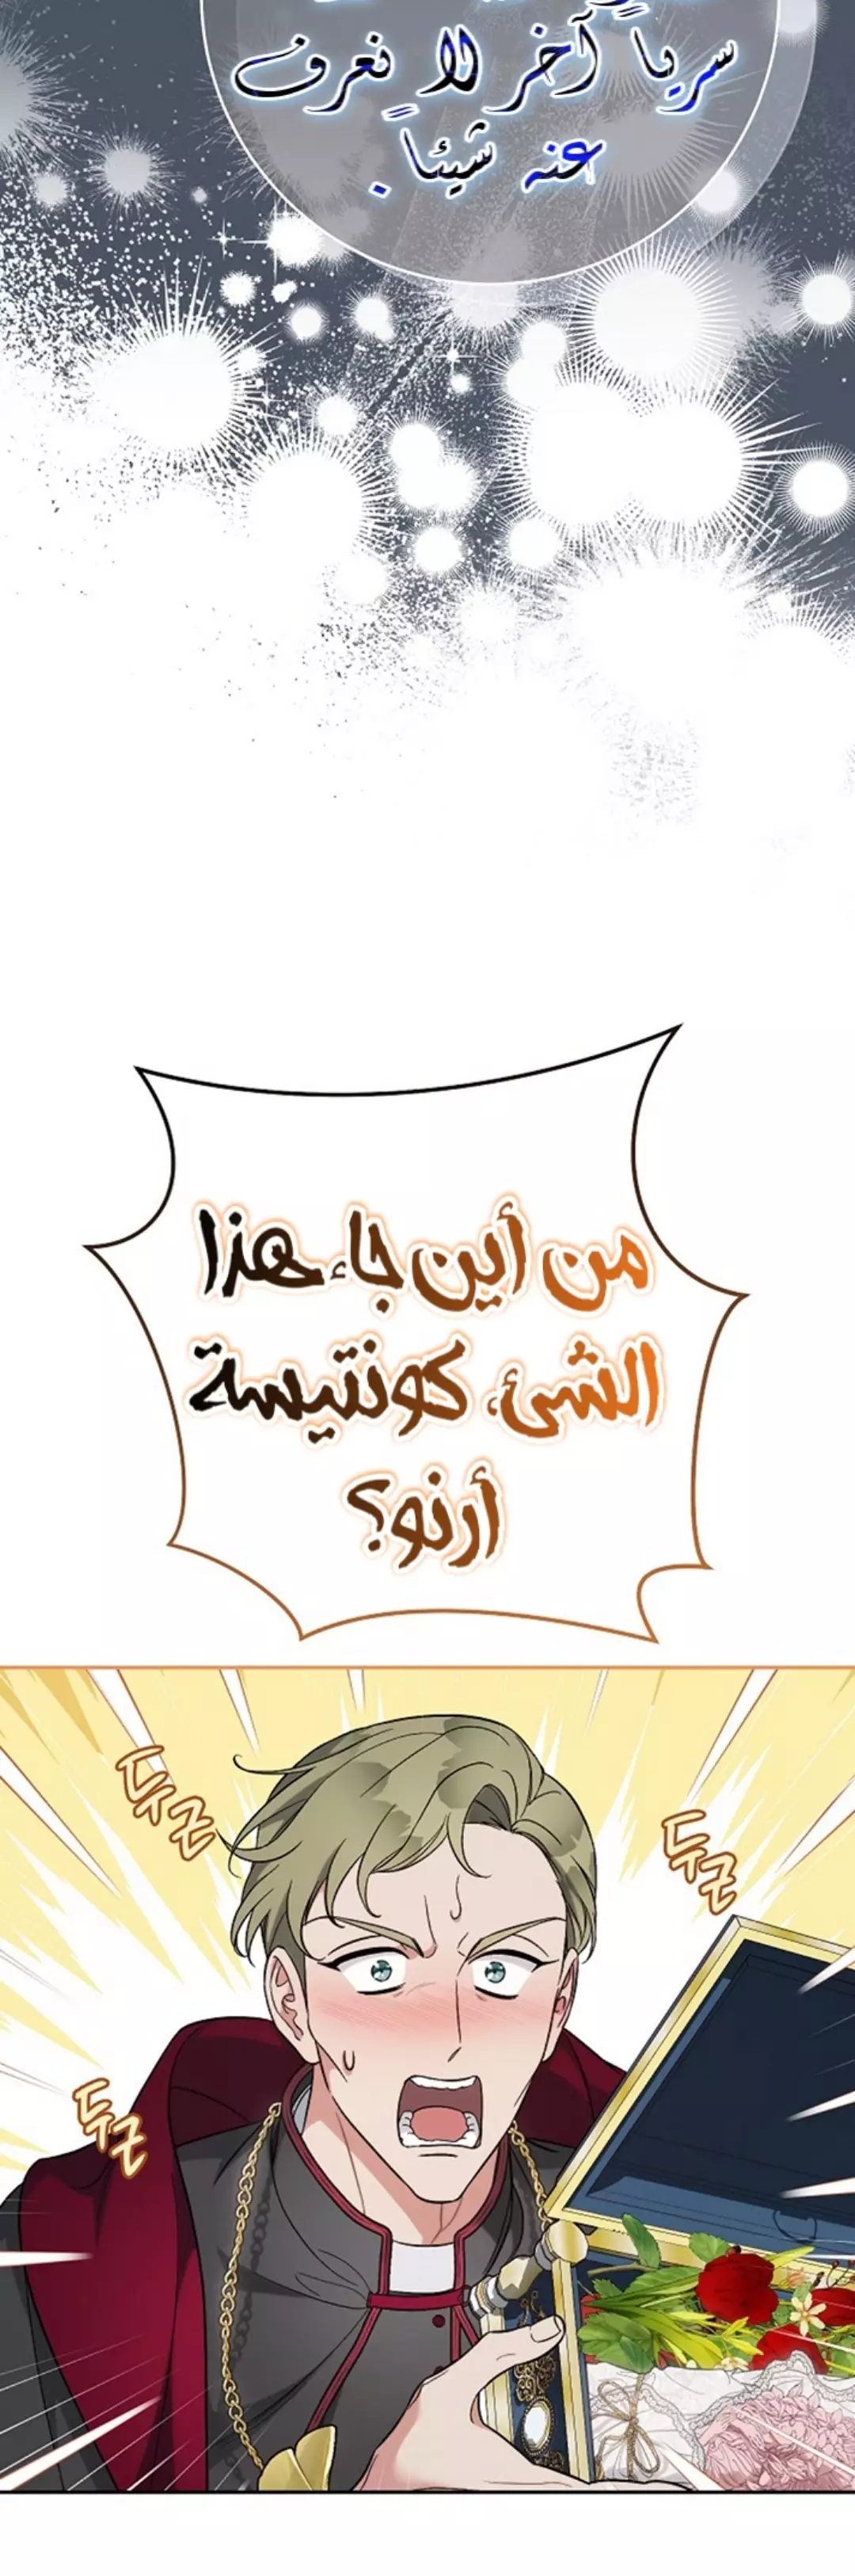 سرياً آخر لا نعرف
عنه شيئاً.
من أين جاء هذا
الشئ، كونتيسة
أرنو؟
두근
두근
두근